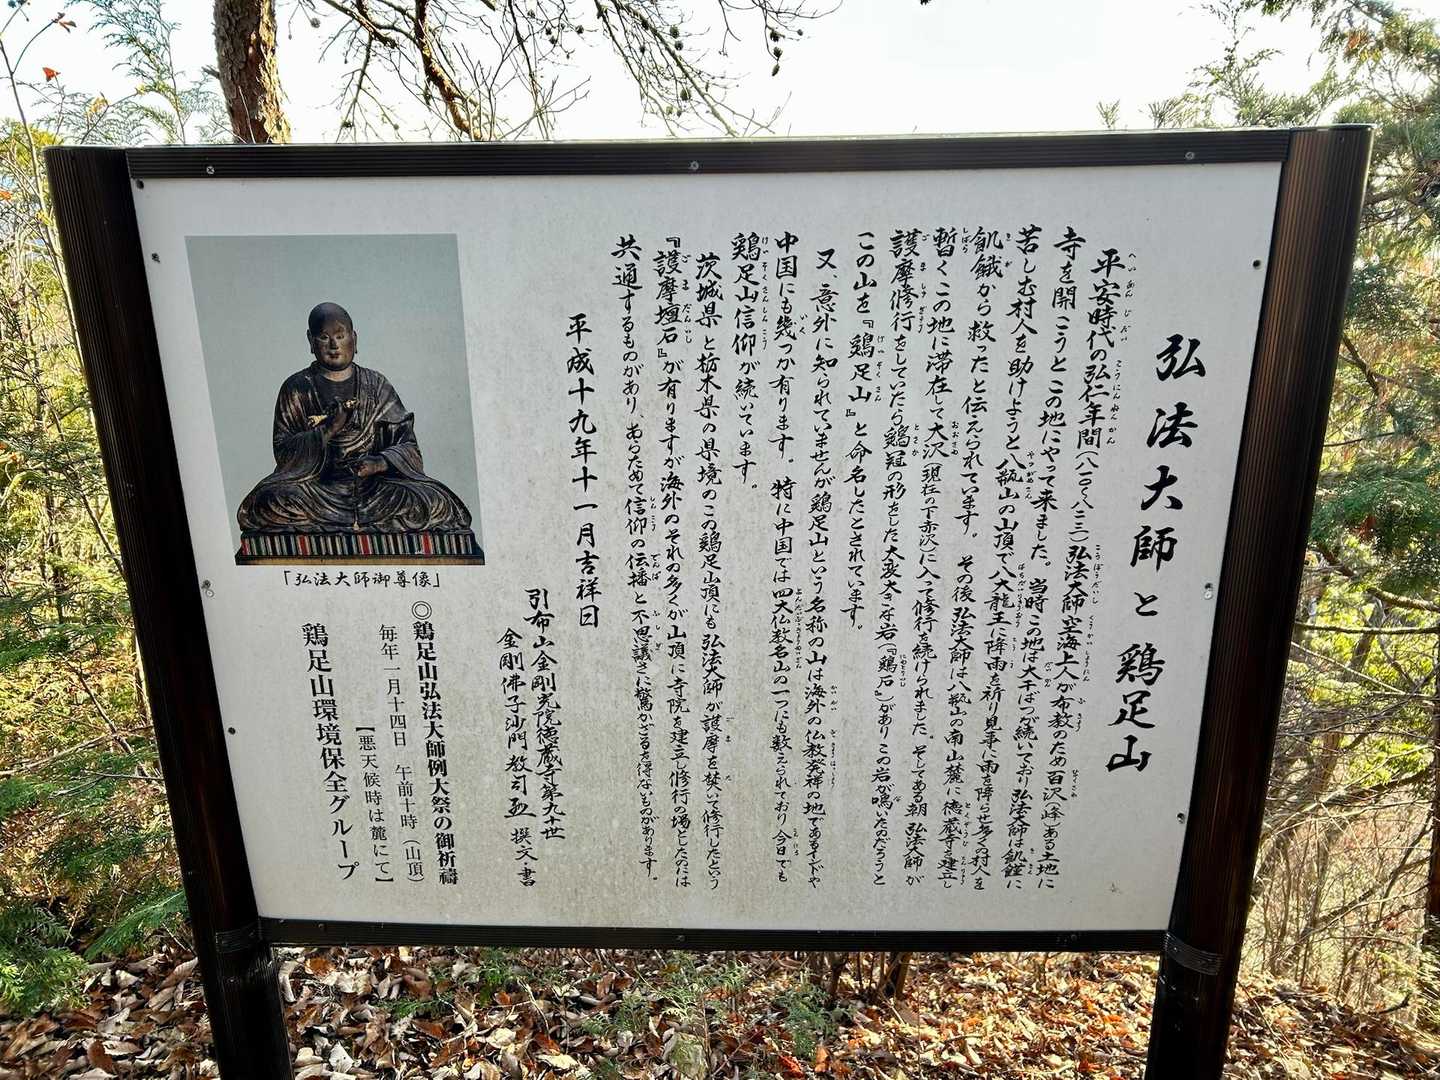 弘法大師と鶏足山
平安時代の弘仁年間(八一〇〜八二三)弘法大師空海上人が布教のため百沢(峰にある土地に
寺を開こうとこの地にやって来ました。当時この地は大干ばつが続いており弘法大師は飢饉に
苦しむ村人を助けようと八瓶山の山頂で八大龍王に降雨を祈り見事に雨を降らせ多くの村人を
飢餓から救ったと伝えられています。その後弘法大師は八瓶山の南山麓に徳蔵寺を建立し
暫くこの地に滞在して大沢(現在の下赤沢)に入って修行を続けられました。そしてある朝弘法大師が
護摩修行をしていたら鶏冠の形をした大変大きな岩(『鶏石』)がありこの岩が鳴いたのだろうと
この山を『鶏足山』と命名したとされています。
又、意外に知られていませんが鶏足山という名称の山は海外の仏教発祥の地であるインドや
中国にも幾つか有ります。特に中国では四大仏教名山の一つにも数えられており今日でも
鶏足山信仰が続いています。
茨城県と栃木県の県境のこの鶏足山頂にも弘法大師が護摩を焚いて修行したという
『護摩壇石』が有りますが海外のそれの多くが山頂に寺院を建立し修行の場としたのには
共通するものがあり、あらためて信仰の伝播と不思議さに驚かざるを得ないものがあります。
平成十九年十一月吉祥日
引布山金剛光院徳蔵寺第九十世
金剛佛子沙門教司 撰文・書
「弘法大師御尊像」
◎鶏足山弘法大師例大祭の御祈禱
毎年一月十四日 午前十時(山頂)
【悪天候時は麓にて】
鶏足山環境保全グループ